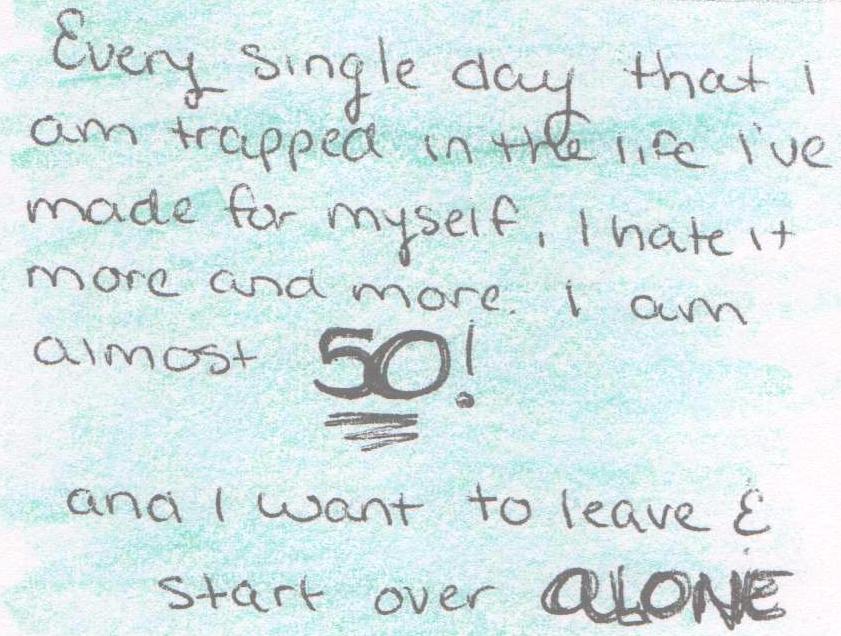 Every single day that i
am trapped in the life I've
made for myself, I hate it
more and more. i am
almost 50!
and I want to leave &
start over ALONE